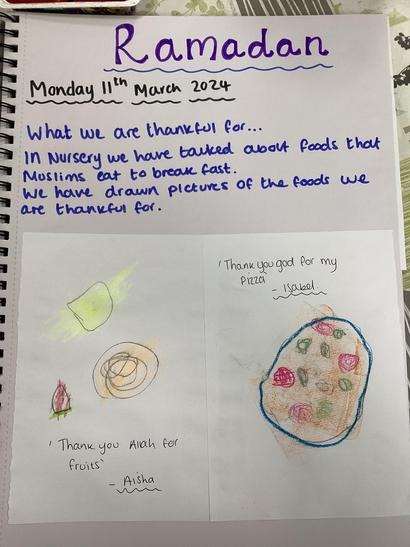 Ramadan
Monday 11th March 2024
What we are thankful for...
In Nursery we have talked about foods that
Muslims eat to break fast.
We have drawn pictures of the foods we
are thankful for.
'Thank you god for my
Pizza
- Isabel.
'Thank you Allah for
fruits'
- Aisha